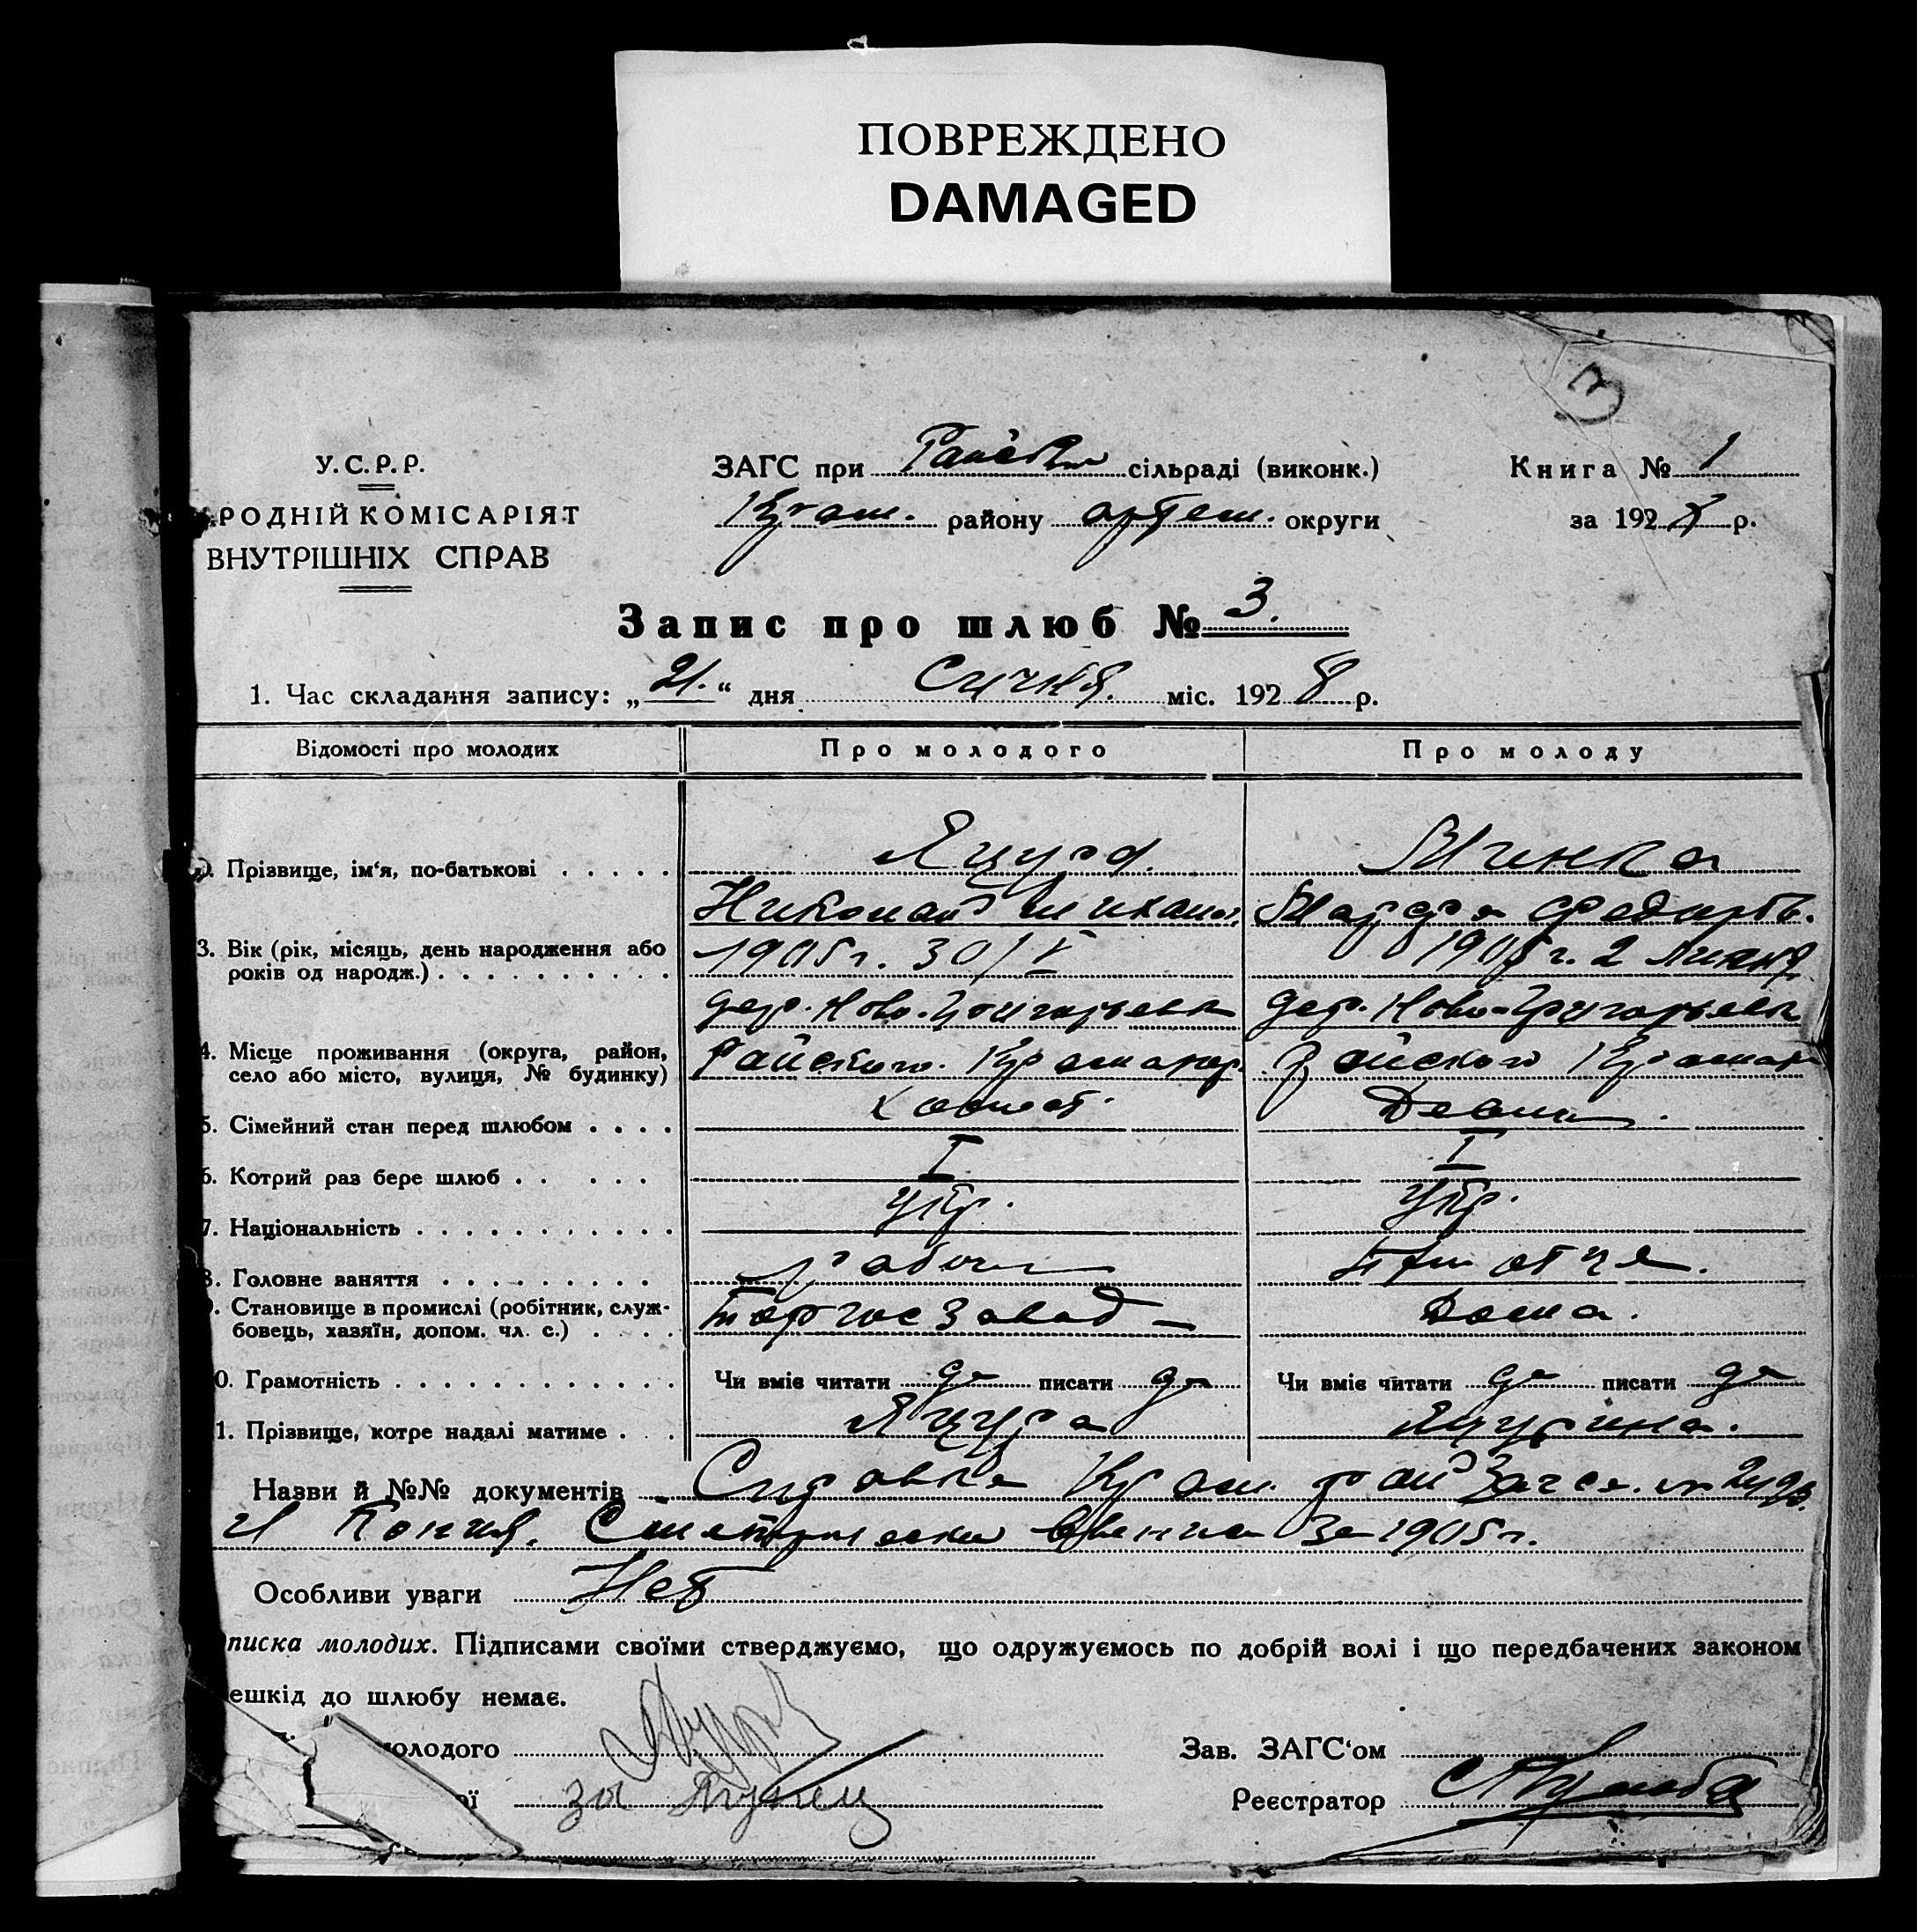 ПОВРЕЖДЕНО
DAMAGED
3
У.С.Р.Р.
РОДНІЙ КОМІСАРІЯТ
ВНУТРІШНІХ СПРАВ
ЗАГС при сільраді (виконк.)
Крам. района артем. округи
Книга № 1
за 192 р.
Запис про шлюб № 3.
1. Час складання запису: „21.“ дня Січня. міс. 1928 р.
Відомості про молодих
Про молодого
Про молоду
Прізвище, ім‘я, по-батькові
Яцура
Николай
Марфа
3. Вік (рік, місяць, день народження або
років од народж.)
1905 г. 30/V
2
дер. Ново-Григорьевка
дер. Ново-Григорьевка
4. Місце проживання (округа, район,
село або місто, вулиця, № будинку)
Райского. Краматор.
Райского Краматор
5. Сімейний стан перед шлюбом
Холост.
6. Котрий раз бере шлюб
I
I
7. Національність
Укр.
Укр.
8. Головне заняття
9. Становище в промислі (робітник, служ-
бовець, хазяїн, допом. чл. с.)
завод
Дома.
0. Грамотність
Чи вміє читати да писати да
Чи вміє читати да писати да
1. Прізвище, котре надалі матиме
Яцура
Яцурина.
Назви й №№ документів Справка Крам. рай Загса.
и Копия. за 1905 г.
Особливи уваги Нет
писка молодих. Підписами своїми стверджуємо, що одружуємось по добрій волі і що передбачених законом
ешкід до шлюбу немає.
олодого Яцура
ої за
Зав. ЗАГС‘ом
Реєстратор